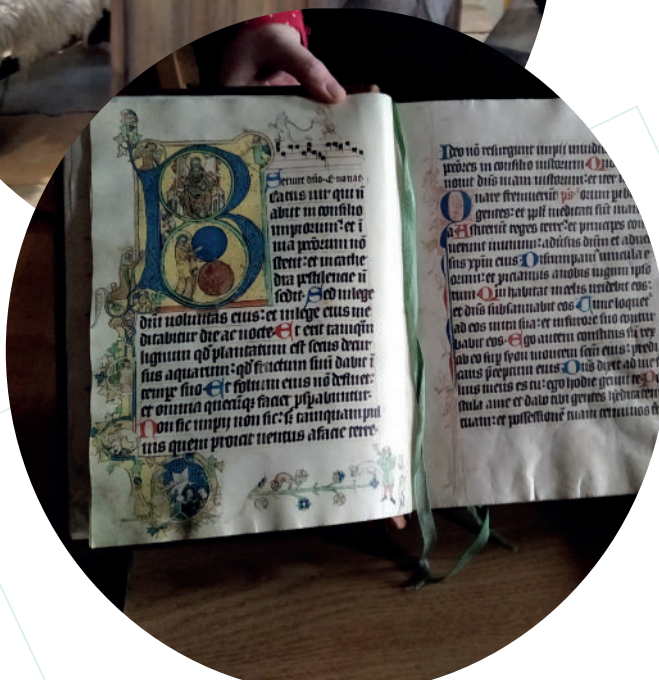 B
Servite dño. Evovae.
eatus vir qui ñ
abiit in consilio
impiorum: et ĩ
via pc̃orum nõ
stetit: et in cathe
dra pestilencie ñ
sedit. Sed in lege
dñi voluntas eius: et in lege eius me
ditabitur die ac nocte. Et erit tamq̃m
lignum qd̃ plantatum est secus decur
sus aquarum: qd̃ fructum suũ dabit ĩ
tempr̃e suo. Et folium eius nõ defluet:
et omnia quecũq̃ faciet psp̃abuntur.
Non sic impij non sic: s̃ tamquam pul
uis quem proicit ventus a facie terre.
Ideo nõ resurgunt impij in iudi
pc̃ores in consilio iustorum. Qm̃
novit dñs viam iustorum: et iter
Quare fremuerũt ps̃
gentes: et ppl̃i meditati sũt inania
Astiterũt reges terre: et principes con
venerunt in unum: adv̾sus dñm et adver
sus xp̃m eius. Dirumpam̾ vincula e
orum: et piciam̾ a nobis iugum ipso
rum. Qui habitat in celis irridebit eos:
et dñs subsannabit eos. Tunc loquet̾
ad eos in ira sua: et in furore suo contur
babit eos. Ego autem constitutus sũ rex
ab eo sup̾ syon montem scm̃ eius: predi
cans p̾ceptum eius. Dñs dixit ad me
filius meus es tu: ego hodie genui te. Po
stula a me et dabo tibi gentes
tuam: et possessionẽ tuam terminos